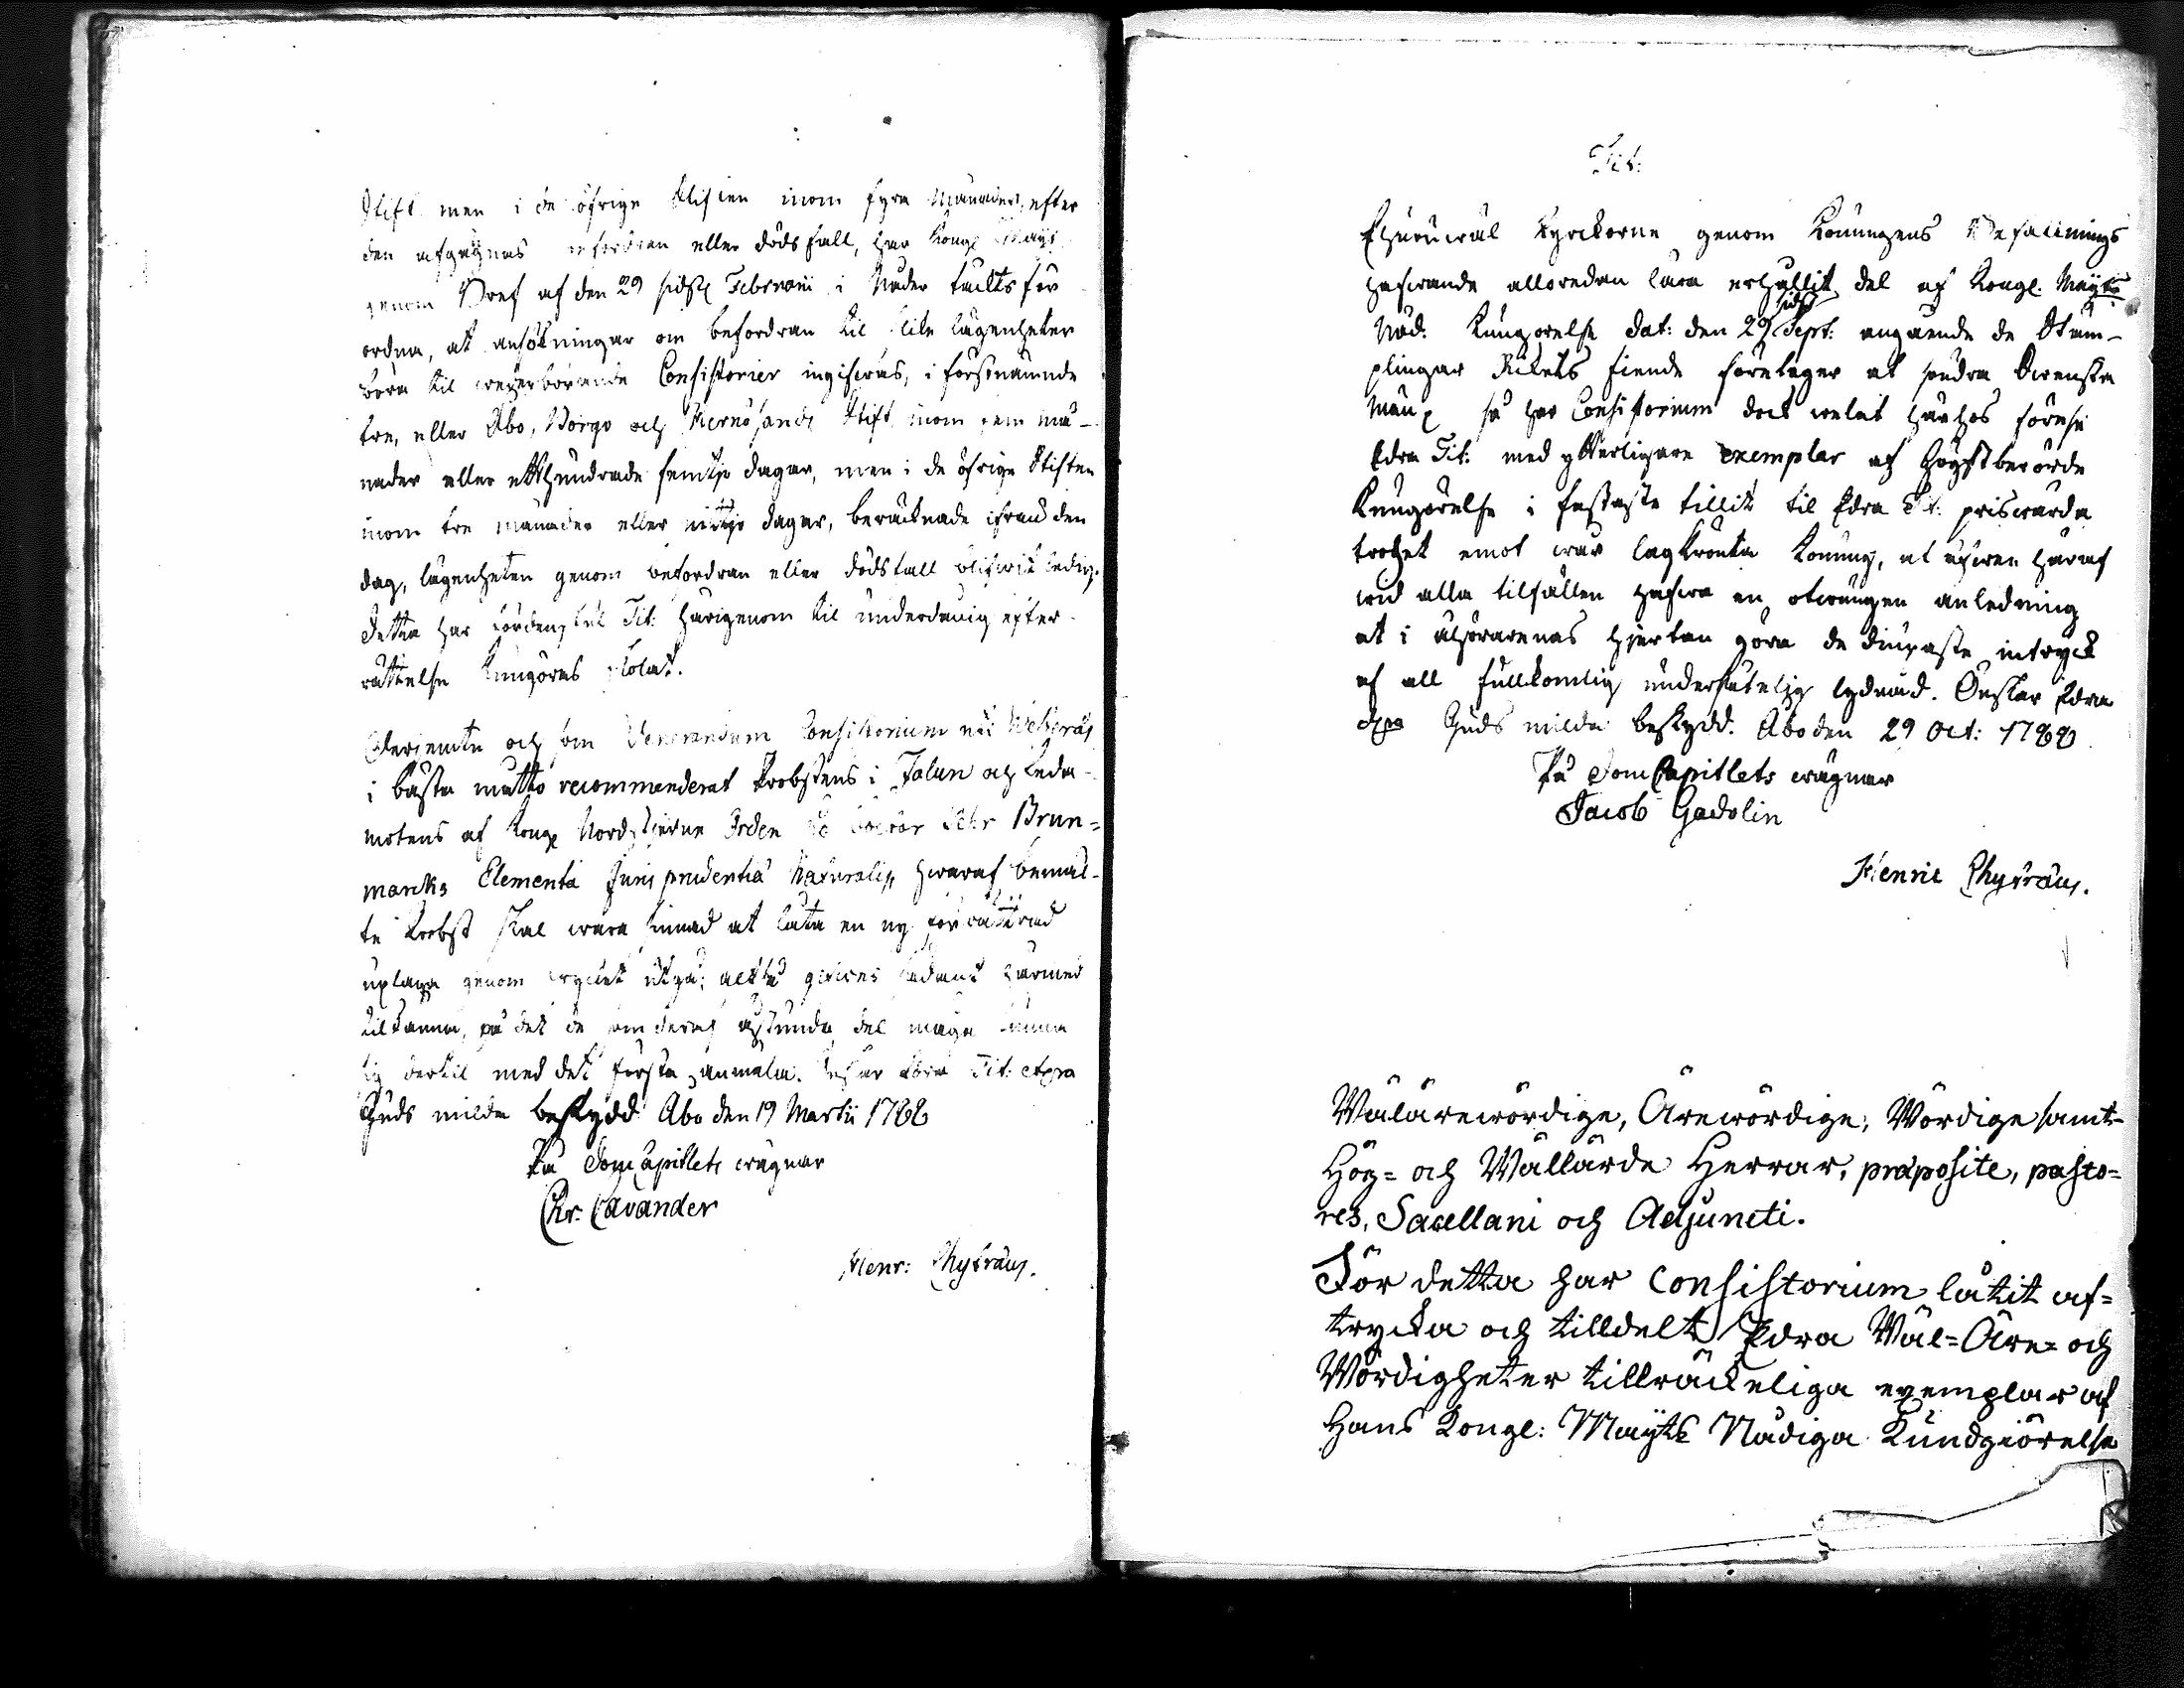 Stift men i de öfrige Stiften inom fyra Månader efter
den afgagnas befordran eller dödsfall, har Kongl Mayt
genom Bref af den 29 sidstl Februarii i Nåder täckts för
ordna, at ansökningar om befordran til slike lägenheter
böra til wederbörande Consistorier ingifwas, i förstnämnde
tre, eller Åbo, Borgo och Hernösands Stift inom fem må-
nader eller etthundrade femtijo dagar, men i de öfrige Stiften
inom tre månader eller nittijo dagar, beräcknade ifrån den
dag, lägenheten genom befordran eller dödsfall blifwit ledig.
Detta har Tit: härigenom til underdånig efter-
rättelse kungöras skolat.
Derjemte och som Venerandum Consistorium uti Westerås
i bästa matto recommenderat Probstens i Falun och Leda-
motens af Kongl Nordstjerne Orden Doctor Brun=
marks Elementa Juris prudentiæ Naturalis, hwaraf bemäl-
te Probst skal wara sinnad at låta en ny förbättrad
uplaga genom trycket utgå; altså gifwes sådant härmed
tilkänna, på det de som deraf åstunda del måga kunna
sig dertil med det första anmäla. Önskar Edra Tit: etc
Guds milda beskydd Åbo den 19 Martii 1788
På DomCapitlets wägnar
Chr. Cavander
Henr: Chytræus.
Tit:
Ehuruwäl Kyrckorne genom Konungens Befallnings
hafwande alloredan lära erhållit del af Kongl. Mayts
Nåd. Kungörelse dat: den 29 sidstl Sept: angående de Stäm-
plingar Rikets fiende företager at söndra Swenska
Män så har Consistorium dock welat härhos förse
Edra Tit: med ytterligare exemplar af högstberörde
Kungörelse i fastaste tillit til Edra Tit: priswärda
trohet emot wår lagkrönta Konung, at äfwen häraf
wid alla tilfällen hafwa en otwungen anledning
at i åhörarenas hjertan göra de djupaste intryck
af all fullkomlig undersåtelig lydnad. Önskar Edra
Guds milda beskydd. Åbo den 29 Oct: 1788.
På DomCapitlets wägnar
Jacob Gadolin
Henric Chytræus.
Wälärewördige, Ärewördige, Wördige samt
Hög= och Wällärde Herrar, præposite, pasto=
res, Sacellani och Adjuncti.
För detta har Consistorium låtit af=
trycka och tilldelt Edra Wäl=Äre= och
Wördigheter tillräckeliga exemplar af
Hans Kongl: Mayts Nådiga Kundgiörelse